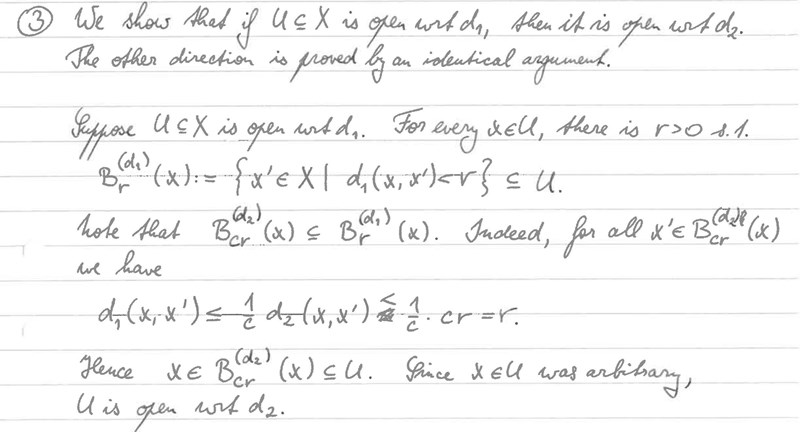 ③ We show that if U ⊆ X is open wrt d₁, then it is open wrt d₂.
The other direction is proved by an identical argument.
Suppose U ⊆ X is open wrt d₁. For every x∈U, there is r>0 s.t.
B_r^(d₁)(x) := {x'∈ X | d₁(x,x')<r} ⊆ U.
Note that B_cr^(d₂)(x) ⊆ B_r^(d₁)(x). Indeed, for all x'∈ B_cr^(d₂)(x)
we have
d₁(x,x') ≤ 1/c d₂(x,x') < 1/c · cr = r.
Hence x∈ B_cr^(d₂)(x) ⊆ U. Since x∈U was arbitrary,
U is open wrt d₂.